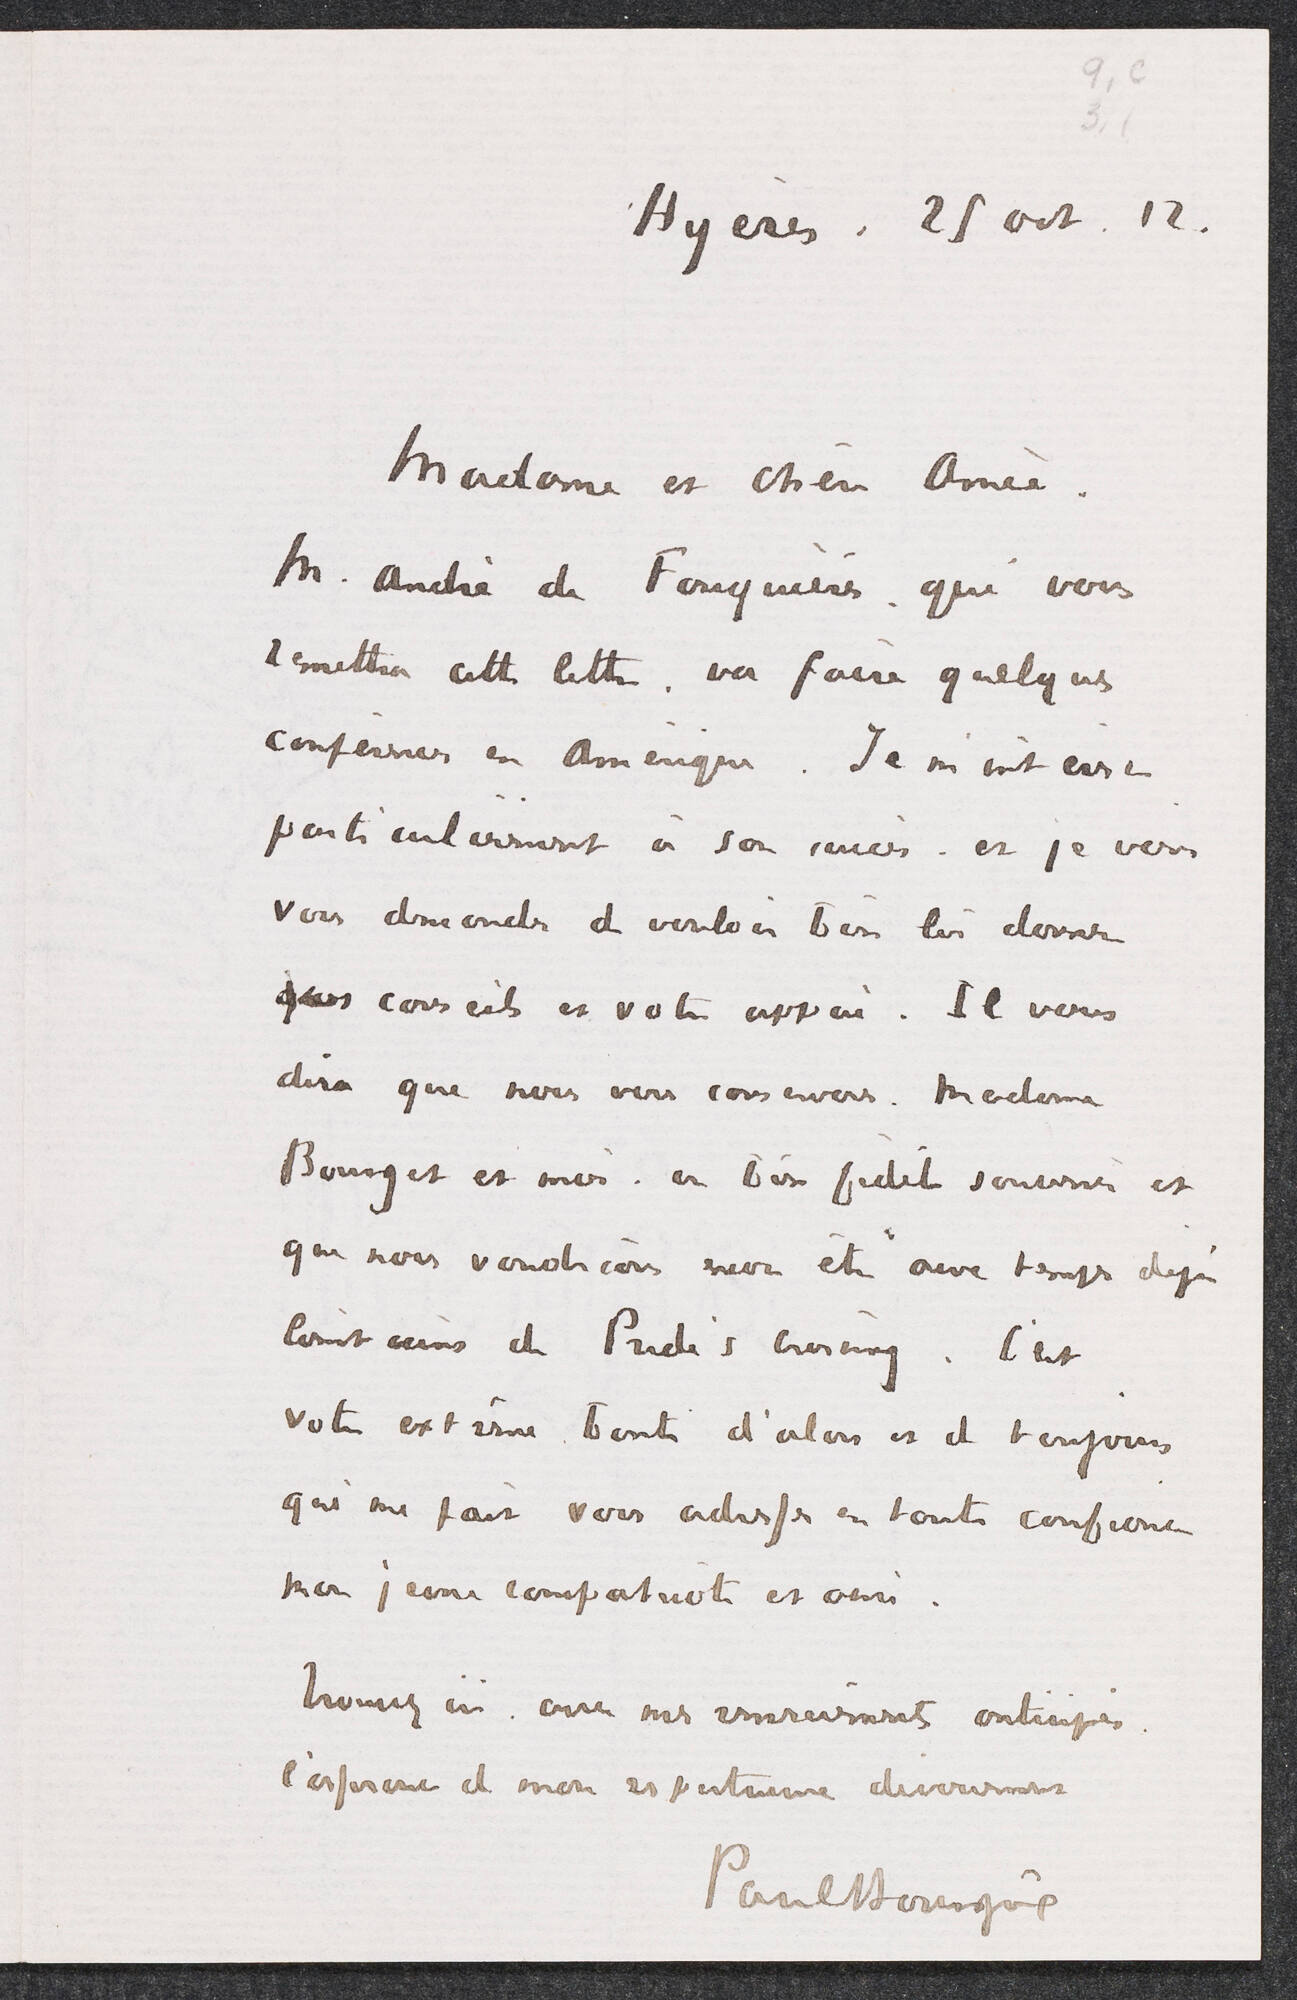 9, c
3, 1
Hyères. 25 oct. 12.
Madame et chère Amie.
M. André de Fouquières, qui vous
remettra cette lettre, va faire quelques
conférences en Amérique. Je m'intéresse
particulièrement à son succès. et je viens
vous demander de vouloir bien lui donner
conseils et votre appui. Il vous
dira que nous vous conservons. Madame
Bourget et moi. un bien fidèle souvenir et
que nous voudrions être aux temps déjà
lointains de Pride's Crossing. C'est
votre extrême bonté d'alors et de toujours
qui me fait vous adresser en toute confiance
mon jeune compatriote et ami.
Trouvez ici. avec mes remerciements anticipés.
l'expression de mon respectueux dévouement
Paul Bourget